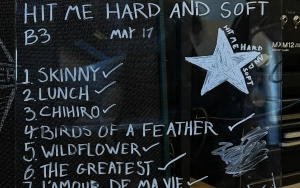 HIT ME HARD AND SOFT
B3 MAY 17
HIT ME HARD AND SOFT
1. SKINNY ✓
2. LUNCH ✓
3. CHIHIRO ✓
4. BIRDS OF A FEATHER ✓
5. WILDFLOWER ✓
6. THE GREATEST ✓
7. L'AMOUR DE MA VIE ✓